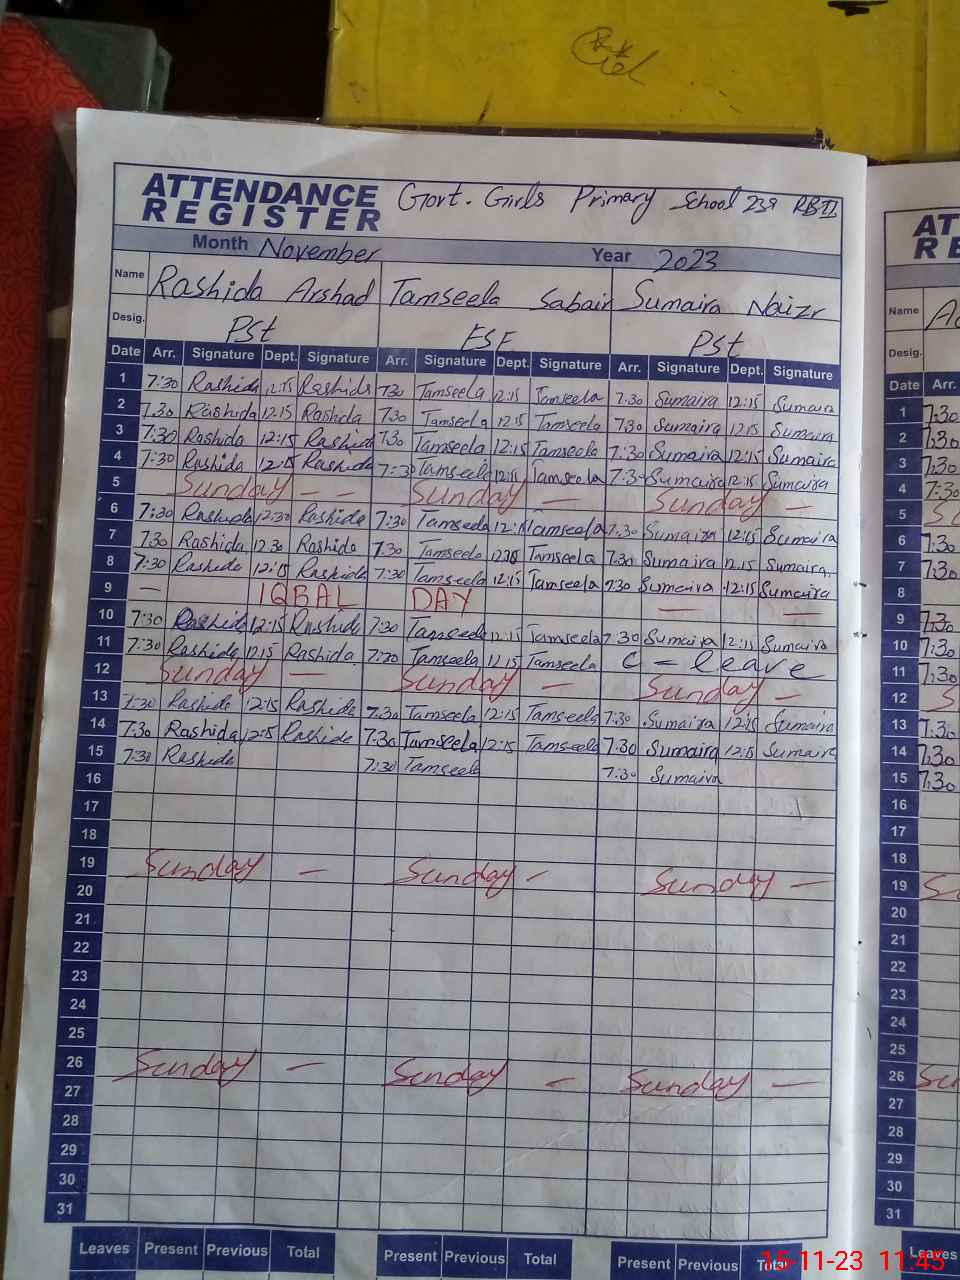 ATTENDANCE REGISTER Govt. Girls Primary School 239 RB II
Month November Year 2023
Name Rashida Arshad Tamseela Sabair Sumaira Naizr
Desig. PSt ESE PSt
Date Arr. Signature Dept. Signature Arr. Signature Dept. Signature Arr. Signature Dept. Signature
1 7:30 Rashida 12:15 Rashida 7:30 Tamseela 12:15 Tamseela 7:30 Sumaira 12:15 Sumaira
2 7:30 Rashida 12:15 Rashida 7:30 Tamseela 12:15 Tamseela 7:30 Sumaira 12:15 Sumaira
3 7:30 Rashida 12:15 Rashida 7:30 Tamseela 12:15 Tamseela 7:30 Sumaira 12:15 Sumaira
4 7:30 Rashida 12:15 Rashida 7:30 Tamseela 12:15 Tamseela 7:30 Sumaira 12:15 Sumaira
5 Sunday - - Sunday - Sunday -
6 7:30 Rashida 12:30 Rashida 7:30 Tamseela Tamseela 7:30 Sumaira 12:15 Sumaira
7 7:30 Rashida 12:30 Rashida 7:30 Tamseela Tamseela 7:30 Sumaira 12:15 Sumaira
8 7:30 Rashida 12:15 Rashida 7:30 Tamseela 12:15 Tamseela 7:30 Sumaira 12:15 Sumaira
9 - IQBAL DAY - -
10 7:30 Rashida 12:15 Rashida 7:30 Tamseela 12:15 Tamseela 7:30 Sumaira 12:15 Sumaira
11 7:30 Rashida 12:15 Rashida 7:30 Tamseela 12:15 Tamseela C - leave
12 Sunday - Sunday - Sunday -
13 7:30 Rashida 12:15 Rashida 7:30 Tamseela 12:15 Tamseela 7:30 Sumaira 12:15 Sumaira
14 7:30 Rashida 12:15 Rashida 7:30 Tamseela 12:15 Tamseela 7:30 Sumaira 12:15 Sumaira
15 7:30 Rashida 7:30 Tamseela 7:30 Sumaira
16
17
18
19 Sunday - Sunday - Sunday -
20
21
22
23
24
25
26 Sunday - Sunday - Sunday -
27
28
29
30
31
Leaves Present Previous Total Present Previous Total Present Previous Total
Name
Desig.
Date Arr.
1 7:30
2 7:30
3 7:30
4 7:30
5
6 7:30
7 7:30
8
9 7:30
10 7:30
11 7:30
12
13 7:30
14 7:30
15 7:30
16
17
18
19
20
21
22
23
24
25
26
27
28
29
30
31
Leaves
15-11-23 11:45